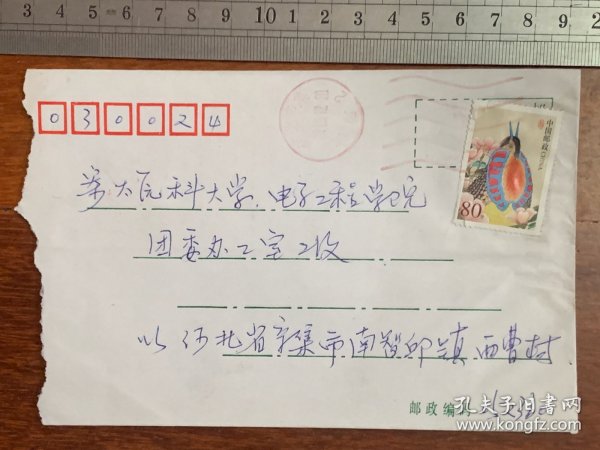 3 4 5 6 7 8 9 10 1 2 3 4 5 6 7 8 9 2
中国邮政 CHINA
80
030024
大学.电子工程学院
团委办工室收
河北省辛集市南智邱镇西曹村
邮政编码
孔夫子旧书网
www.kongfz.com